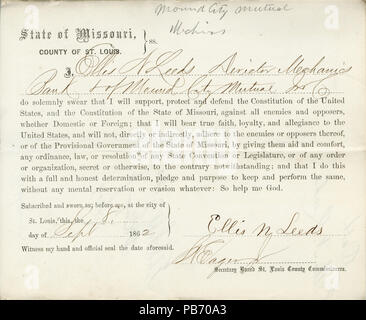 Mound City Mutual
State of Missouri,
COUNTY OF ST. LOUIS. } ss.
I, Ellis N Leeds Director Mechanics
Bank & of Mound City Mutual
do solemnly swear that I will support, protect and defend the Constitution of the United
States, and the Constitution of the State of Missouri, against all enemies and opposers,
whether Domestic or Foreign; that I will bear true faith, loyalty, and allegiance to the
United States, and will not, directly or indirectly, adhere to the enemies or opposers thereof,
or of the Provisional Government of the State of Missouri, by giving them aid and comfort,
any ordinance, law, or resolution of any State Convention or Legislature, or of any order
or organization, secret or otherwise, to the contrary notwithstanding; and that I do this
with a full and honest determination, pledge and purpose to keep and perform the same,
without any mental reservation or evasion whatever: So help me God.
Subscribed and sworn to, before me, at the city of
St. Louis, this the 8
day of Sept 1862
Ellis N Leeds
Witness my hand and official seal the date aforesaid.
Secretary Board St. Louis County Commissioners.
alamy
Image ID: PB70A3
www.alamy.com